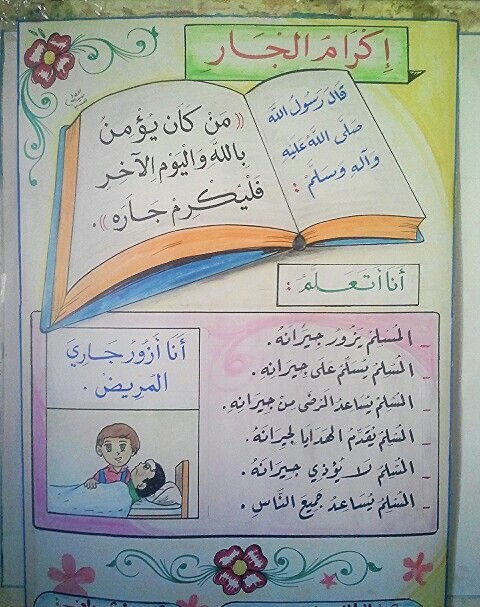 إِكْرَامُ الْجَارِ
قَالَ رَسُولُ اللَّهِ
صَلَّى اللَّهُ عَلَيْهِ
وَآلِهِ وَسَلَّمَ :
(( مَنْ كَانَ يُؤْمِنُ
بِاللَّهِ وَالْيَوْمِ الآخِرِ
فَلْيُكْرِمْ جَارَهُ )).
أَنَا أَتَعَلَّمُ :
_ الْمُسْلِمُ يَزُورُ جِيرَانَهُ .
_ الْمُسْلِمُ يُسَلِّمُ عَلَى جِيرَانِهِ .
_ الْمُسْلِمُ يُسَاعِدُ الْمَرْضَى مِنْ جِيرَانِهِ .
_ الْمُسْلِمُ يُقَدِّمُ الْهَدَايَا لِجِيرَانِهِ .
_ الْمُسْلِمُ لَا يُؤْذِي جِيرَانَهُ .
_ الْمُسْلِمُ يُسَاعِدُ جَمِيعَ النَّاسِ .
أَنَا أَزُورُ جَارِيَ
الْمَرِيضَ .